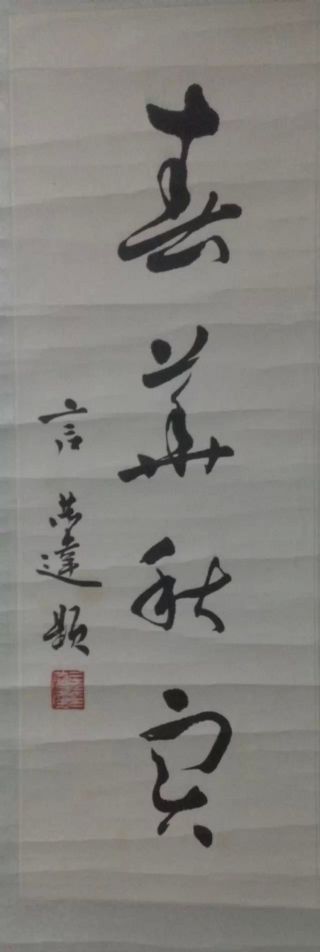 春華秋實
言共達題